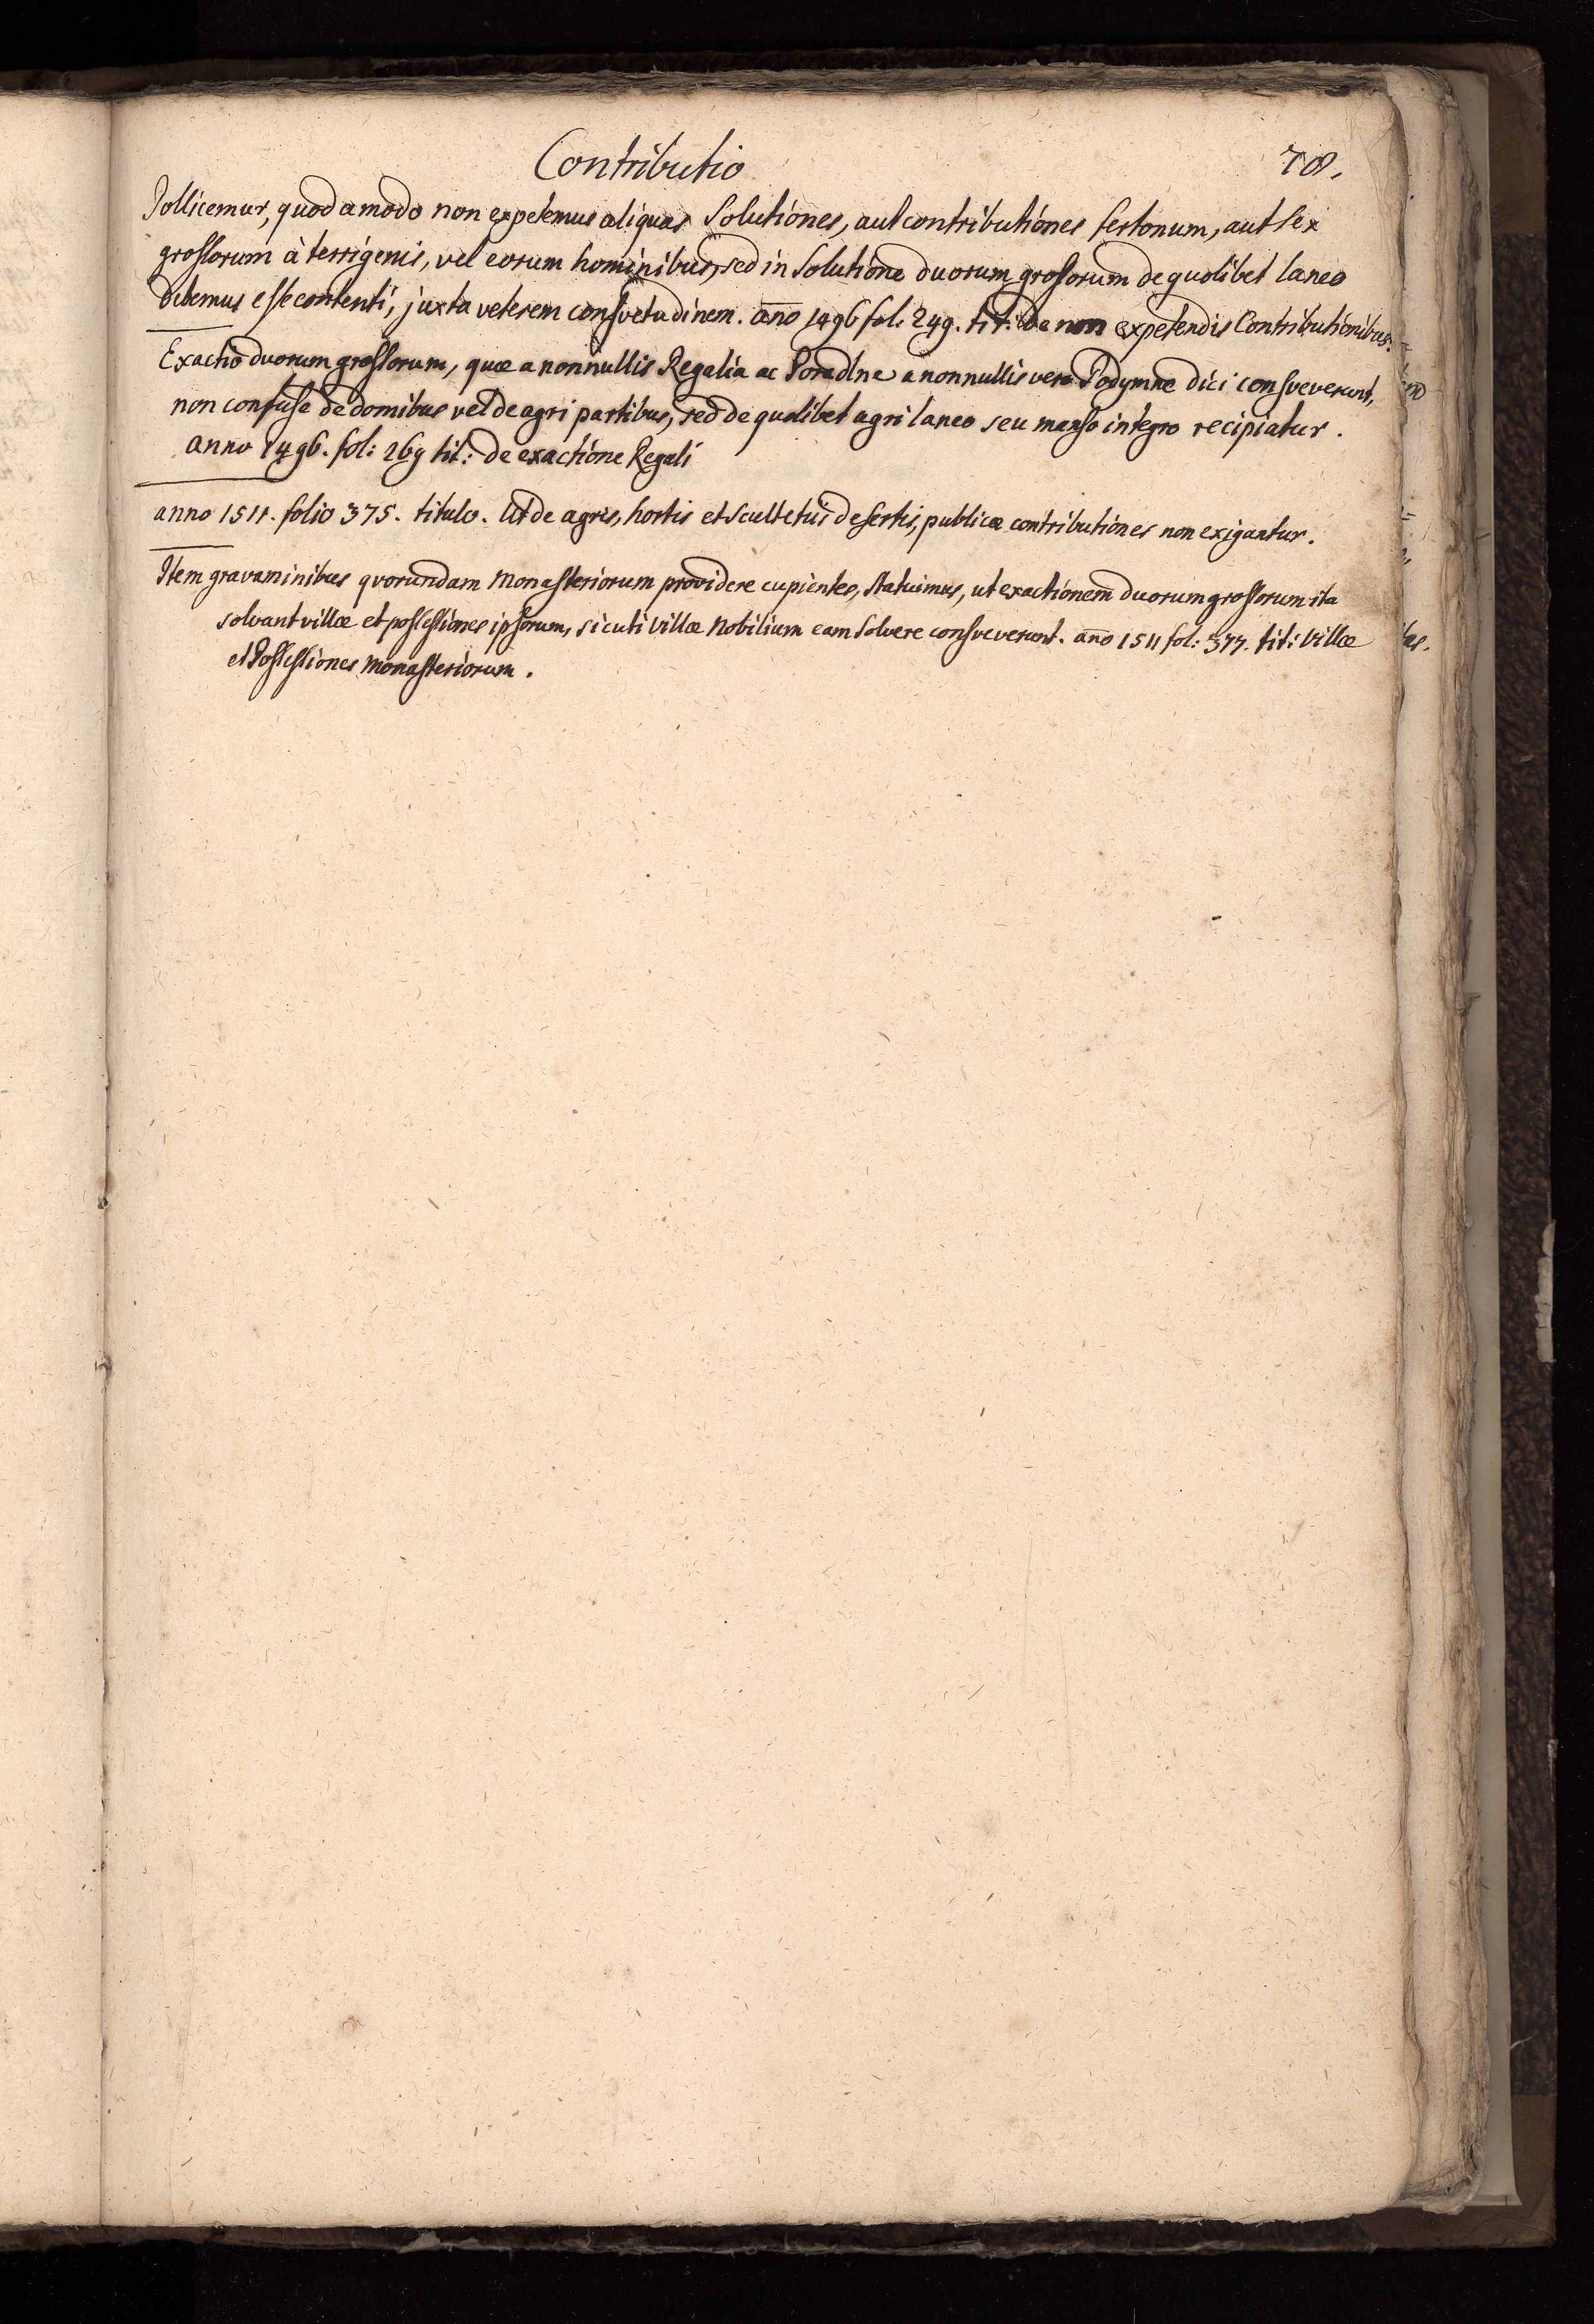 Contributio
78.
Pollicemur, quod amodo non expetemus aliquas Solutiones, aut contributiones fertonum, aut sex
grossorum à terrigenis, vel eorum hominibus, sed in Solutione duorum grossorum de quolibet laneo
debemus esse contenti, juxta veterem consvetudinem. año 1496 fol: 249. tit: de non expetendis Contributionibus.
Exactio duorum grossorum, quæ a nonnullis Regalia ac Poradlne a nonnullis vero Podymne dici consveverunt,
non confuse de domibus vel de agri partibus, sed de quolibet agri laneo seu manso integro recipiatur.
anno 1496. fol: 269 tit: de exactione Regali
anno 1511. folio 375. titulo. Ut de agris, hortis et Scultetiis desertis, publicæ contributiones non exigantur.
Item gravaminibus qvorundam monasteriorum providere cupientes, statuimus, ut exactionem duorum grossorum ita
solvant villæ et possessiones ipsorum, sicuti villæ Nobilium eam solvere consveverunt. año 1511 fol: 377. tit: Villæ
et Possessiones monasteriorum.